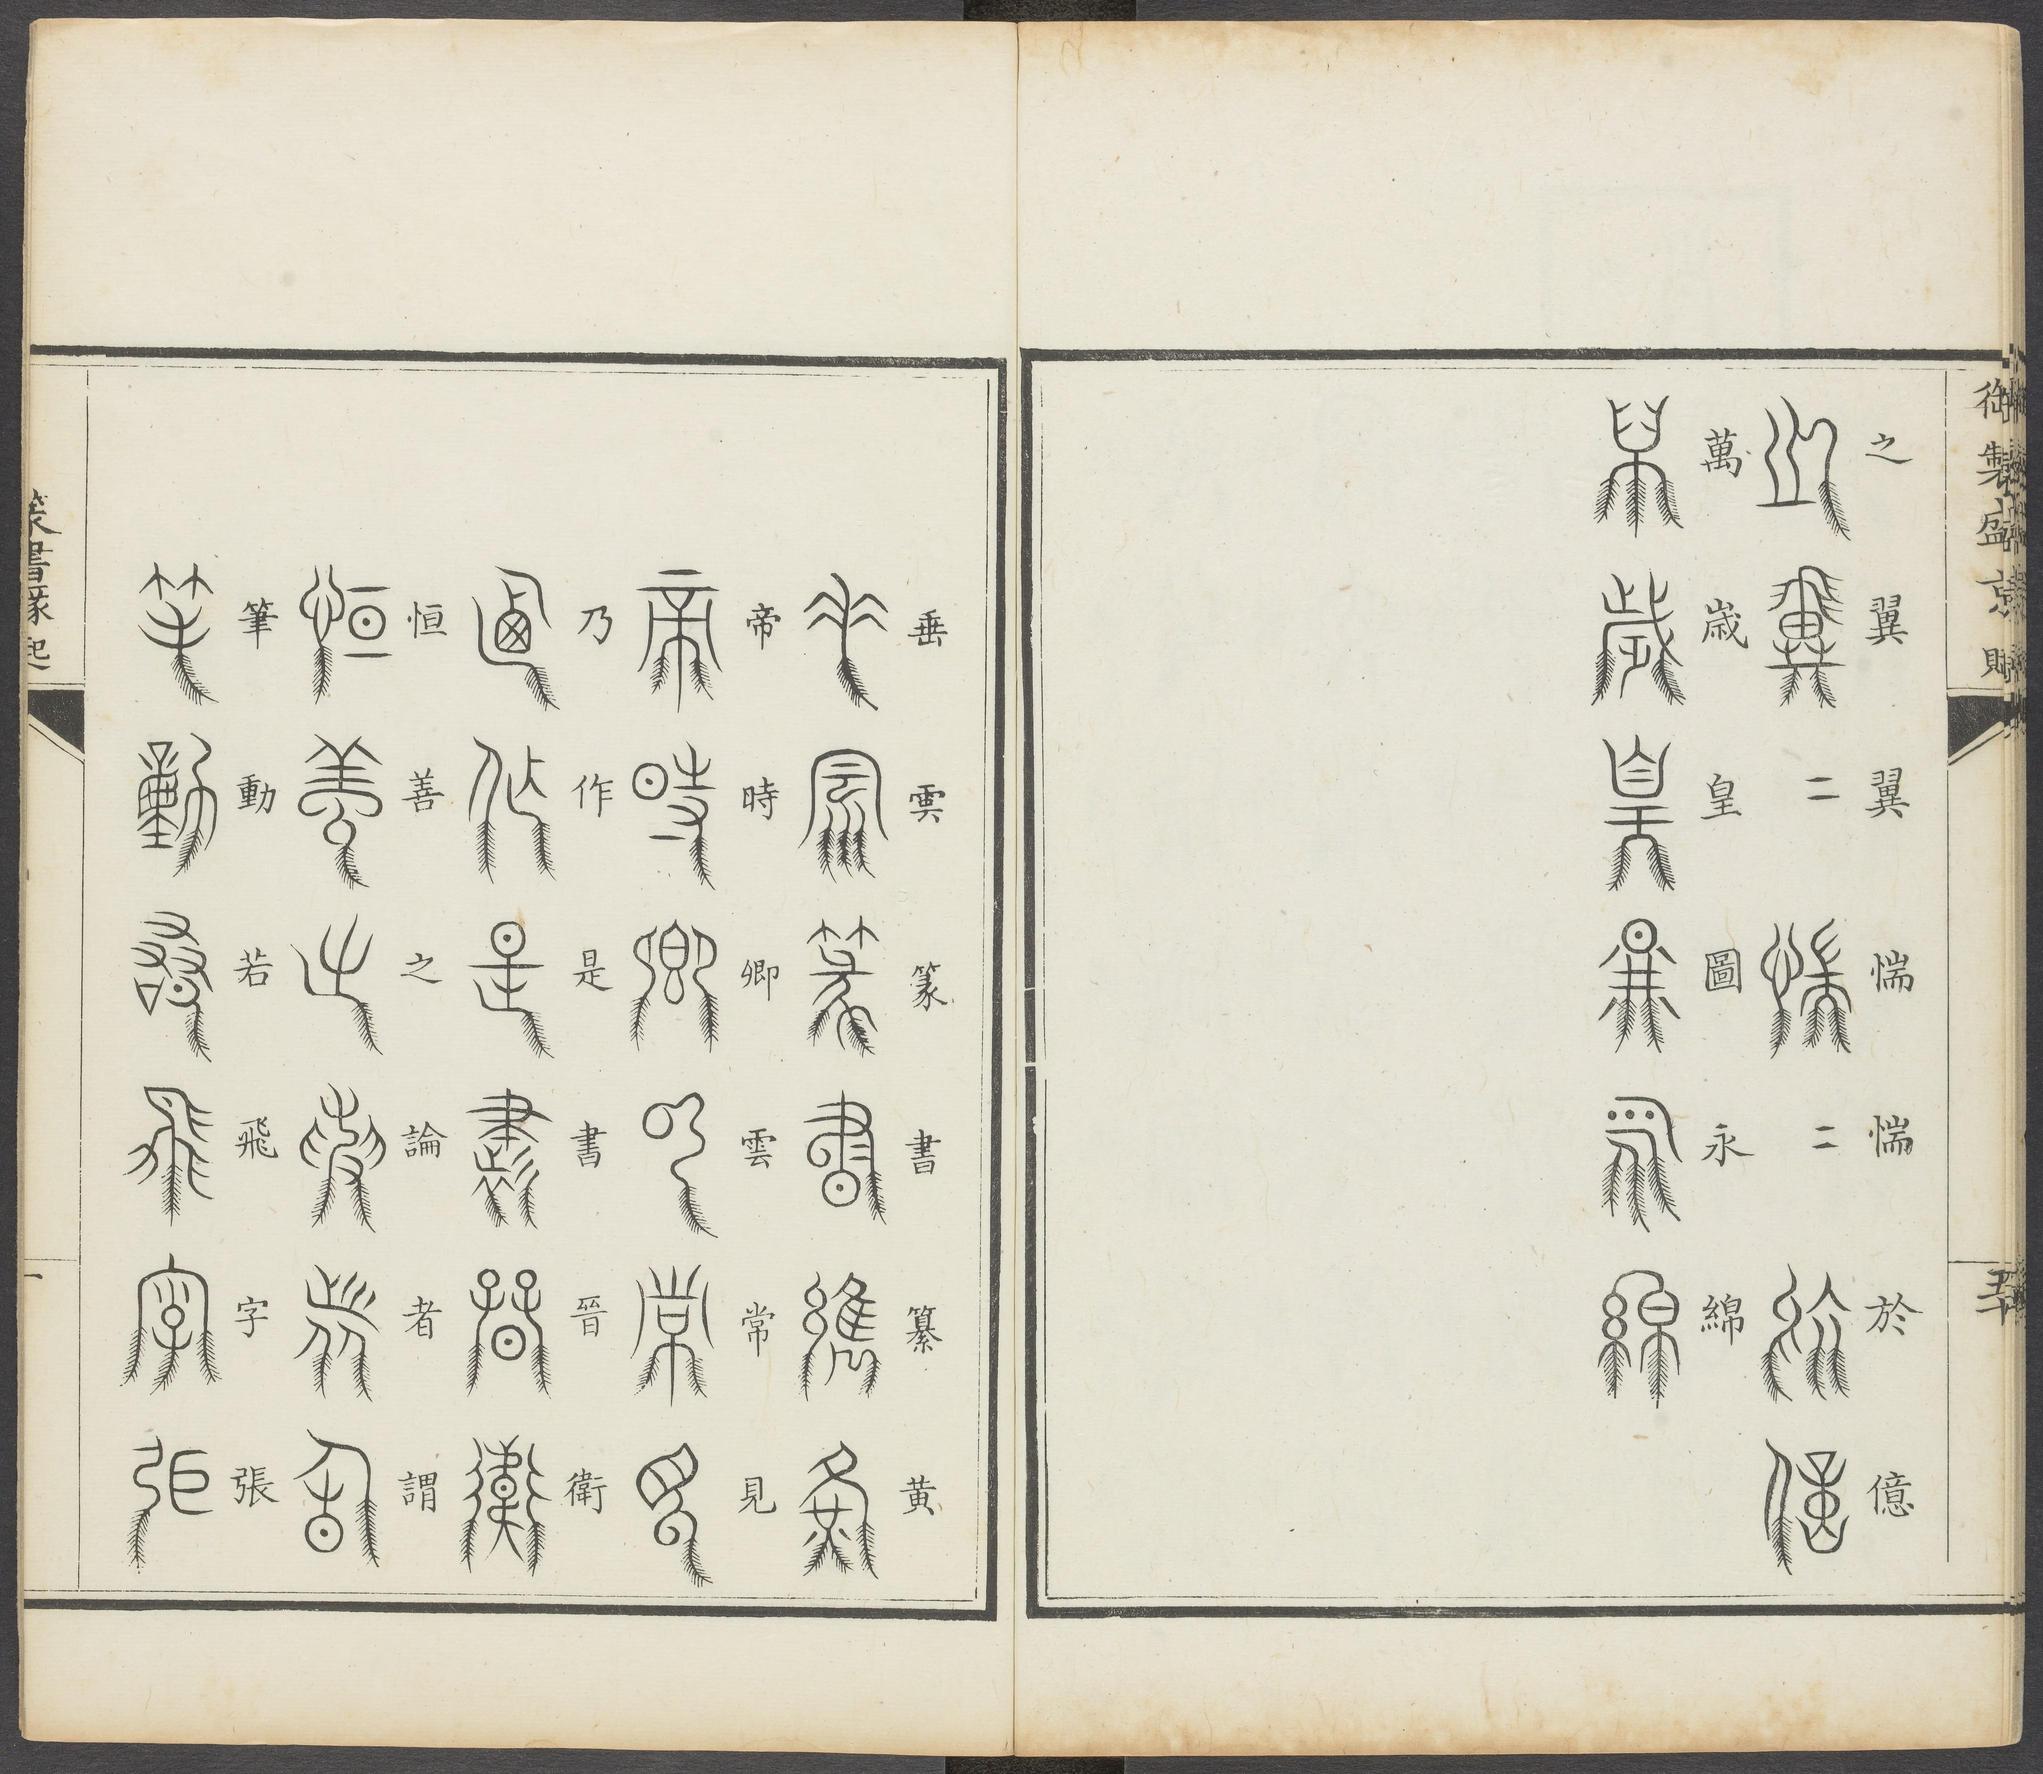 御製盛京賦
五十
之翼翼惴惴於億
萬歳皇圖永綿
垂雲篆書纂黄
帝時卿雲常見
乃作是書晉衛
恒善之論者謂
筆動若飛字張
篆書緣起
一